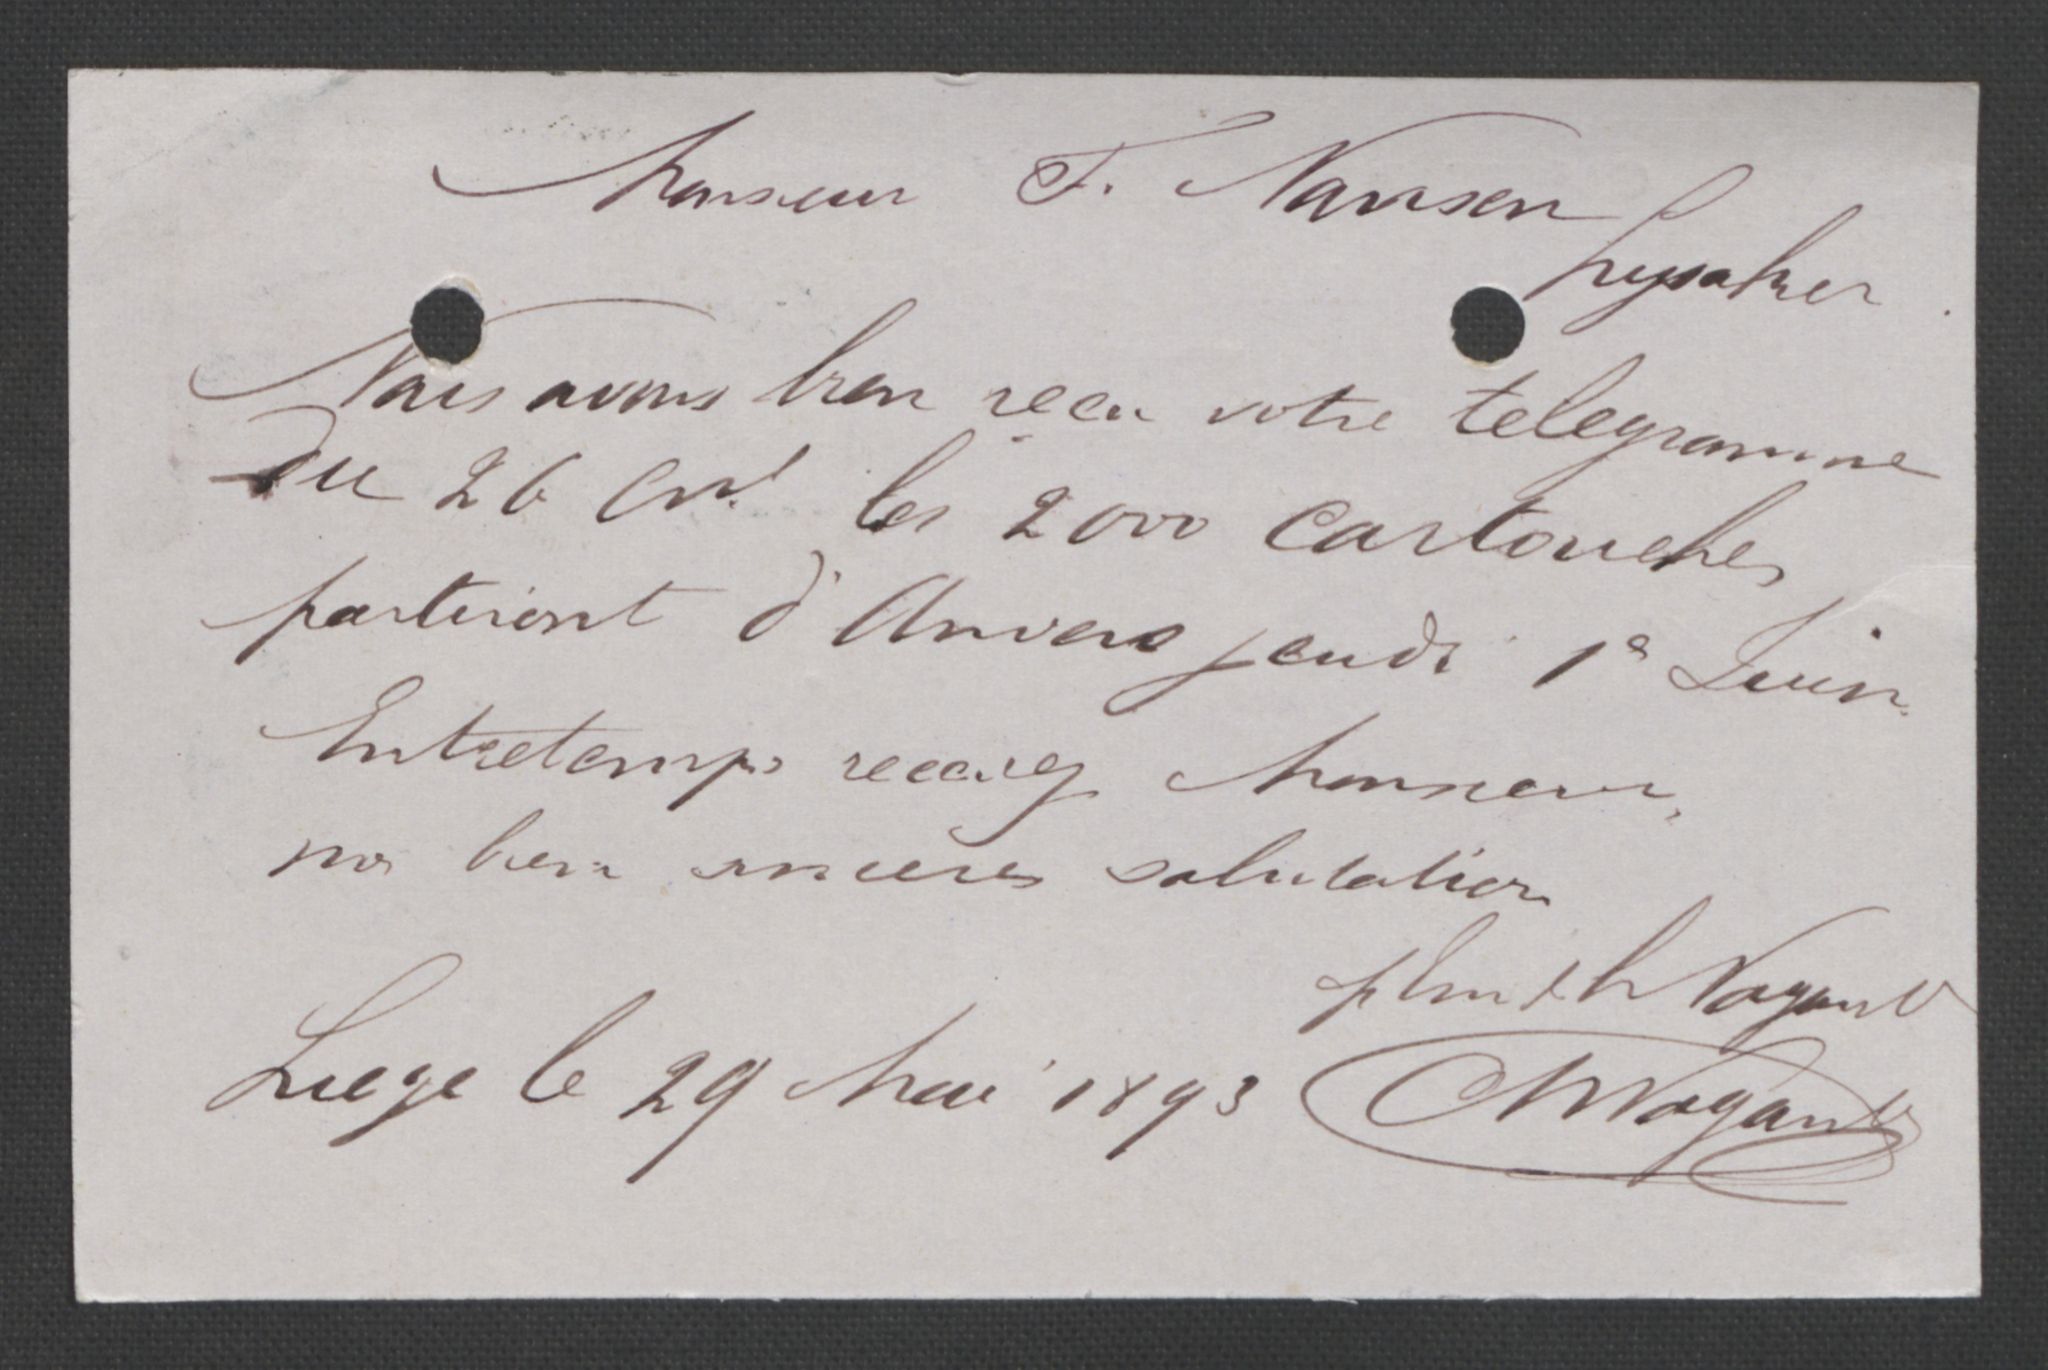 Monsieur F. Nansen
Lysaker.
Nous avons bien reçu votre telegramme
du 26 crt les 2000 cartouches
partiront d'Anvers jeudi 1e Juin.
Entretemps recevez Monsieur,
nos bien sincères salutation
Nagant
Liege le 29 Mai 1893 Nagant